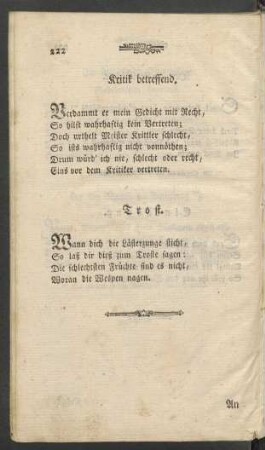 222
Kritik betreffend.
Verdammt er mein Gedicht mit Recht,
So hilft wahrhaftig kein Vertreten;
Doch urthelt Meister Krittler schlecht,
So ists wahrhaftig nicht vonnöthen;
Drum würd' ich nie, schlecht oder recht,
Eins vor dem Kritiker vertreten.
Trost.
Wann dich die Lästerzunge sticht,
So laß dir dieß zum Troste sagen:
Die schlechtsten Früchte sind es nicht,
Woran die Wespen nagen.
An